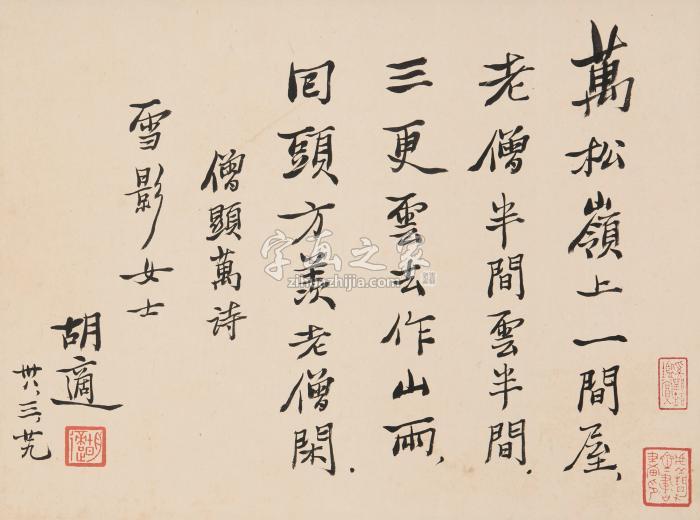 萬松嶺上一間屋、
老僧半間雲半間．
三更雲去作山雨、
回頭方羨老僧閑．
僧顯萬詩
雪影女士
胡適
卅八、三、廿九
字画之家
zihuazhijia.com